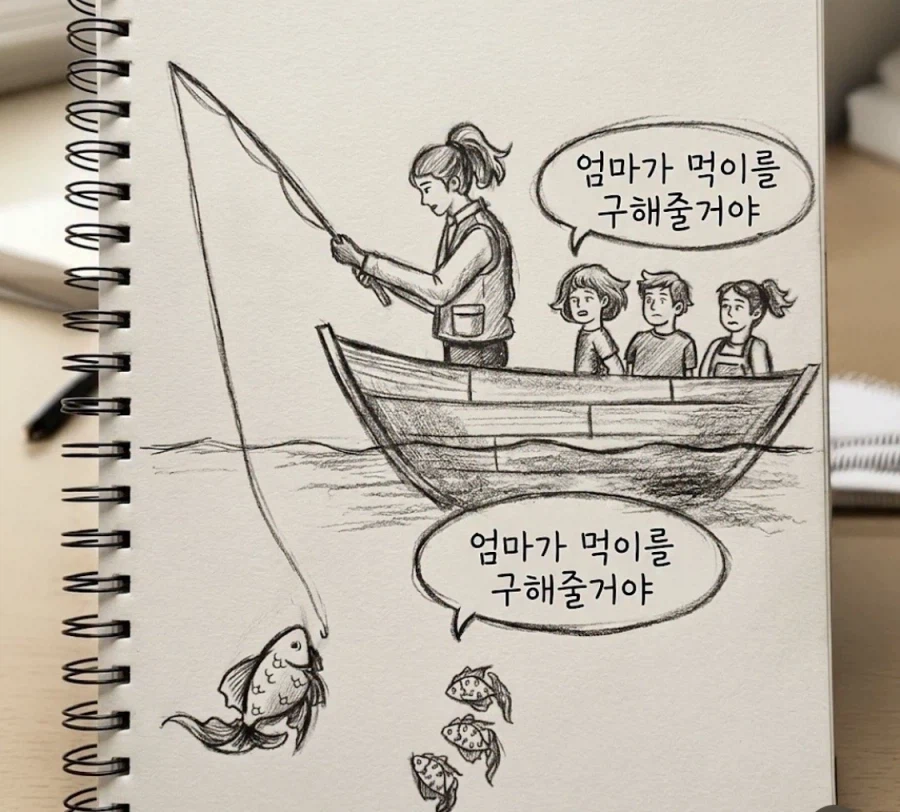 엄마가 먹이를
구해줄거야
엄마가 먹이를
구해줄거야